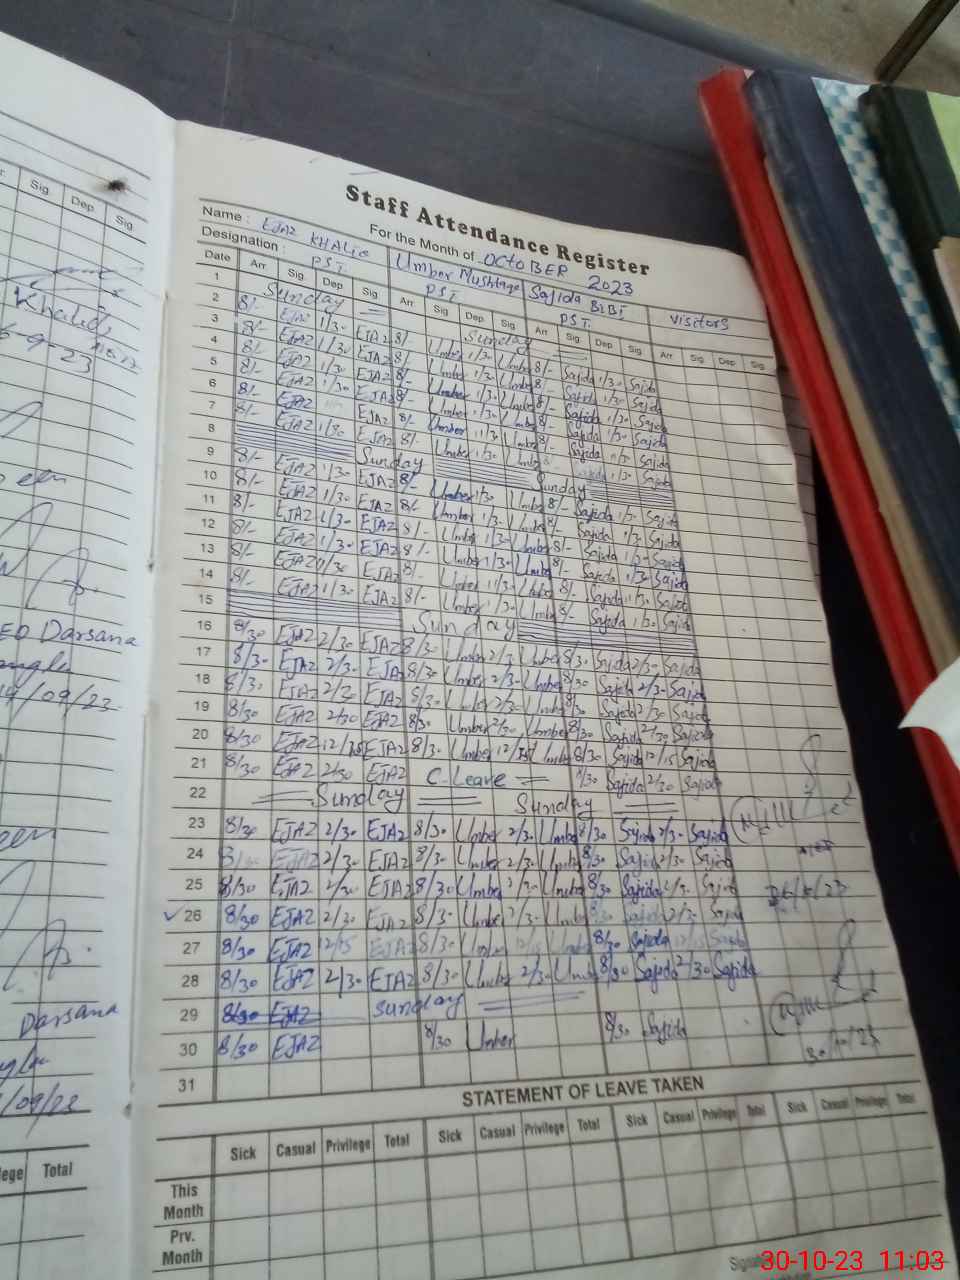 Staff Attendance Register
For the Month of OCTOBER 2023
Name : EJAZ KHALID Umber Mushtaq Sajida BIBI Visitors
Designation : PST. PST PST.
Date Arr. Sig. Dep Sig. Arr. Sig Dep. Sig Arr Sig. Dep Sig. Arr Sig Dep Sig.
1 Sunday Sunday
2 8/- EJAZ 1/30 EJAZ 8/- Umber 1/30 Umber 8/- Sajida 1/30 Sajida
3 8/- EJAZ 1/30 EJAZ 8/- Umber 1/30 Umber 8/- Sajida 1/30 Sajida
4 8/- EJAZ 1/30 EJAZ 8/- Umber 1/30 Umber 8/- Sajida 1/30 Sajida
5 8/- EJAZ 1/30 EJAZ 8/- Umber 1/30 Umber 8/- Sajida 1/30 Sajida
6 8/- EJAZ EJAZ 8/- Umber Umber 8/- Sajida Sajida
7 8/- EJAZ 1/30 EJAZ 8/- Umber 1/30 Umber 8/- Sajida 1/30 Sajida
8 Sunday Sunday
9 8/- EJAZ 1/30 EJAZ 8/- Umber 1/30 Umber 8/- Sajida 1/30 Sajida
10 8/- EJAZ 1/30 EJAZ 8/- Umber 1/30 Umber 8/- Sajida 1/30 Sajida
11 8/- EJAZ 1/30 EJAZ 8/- Umber 1/30 Umber 8/- Sajida 1/30 Sajida
12 8/- EJAZ 1/30 EJAZ 8/- Umber 1/30 Umber 8/- Sajida Sajida
13 8/- EJAZ EJAZ 8/- Umber Umber 8/- Sajida Sajida
14 8/- EJAZ 1/30 EJAZ 8/- Umber 1/30 Umber 8/- Sajida 1/30 Sajida
15 Sunday
16 8/30 EJAZ 2/30 EJAZ 8/30 Umber 2/30 Umber 8/30 Sajida 2/30 Sajida
17 8/30 EJAZ 2/30 EJAZ 8/30 Umber 2/30 Umber 8/30 Sajida 2/30 Sajida
18 8/30 EJAZ 2/30 EJAZ 8/30 Umber 2/30 Umber 8/30 Sajida 2/30 Sajida
19 8/30 EJAZ 2/30 EJAZ 8/30 Umber 2/30 Umber 8/30 Sajida 2/30 Sajida
20 8/30 EJAZ 12/15 EJAZ 8/30 Umber 12/15 Umber 8/30 Sajida 12/15 Sajida
21 8/30 EJAZ 2/30 EJAZ C-Leave 8/30 Sajida 2/30 Sajida
22 Sunday Sunday
23 8/30 EJAZ 2/30 EJAZ 8/30 Umber 2/30 Umber 8/30 Sajida 2/30 Sajida
24 8/30 EJAZ 2/30 EJAZ 8/30 Umber 2/30 Umber 8/30 Sajida 2/30 Sajida
25 8/30 EJAZ 2/30 EJAZ 8/30 Umber 2/30 Umber 8/30 Sajida 2/30 Sajida
26 8/30 EJAZ 2/30 EJAZ 8/30 Umber 2/30 Umber 8/30 Sajida 2/30 Sajida
27 8/30 EJAZ 12/15 EJAZ 8/30 Umber 12/15 Umber 8/30 Sajida 12/15 Sajida
28 8/30 EJAZ 2/30 EJAZ 8/30 Umber 2/30 Umber 8/30 Sajida 2/30 Sajida
29 8/30 EJAZ Sunday
30 8/30 EJAZ 8/30 Umber 8/30 Sajida
31
30/10/23
STATEMENT OF LEAVE TAKEN
Sick Casual Privilege Total Sick Casual Privilege Total Sick Casual Privilege Total Sick Casual Privilege Total
This Month
Prv. Month
Sig. Dep Sig.
Khalid
Darsana
19/09/23
Darsana
/09/23
Total
30-10-23 11:03